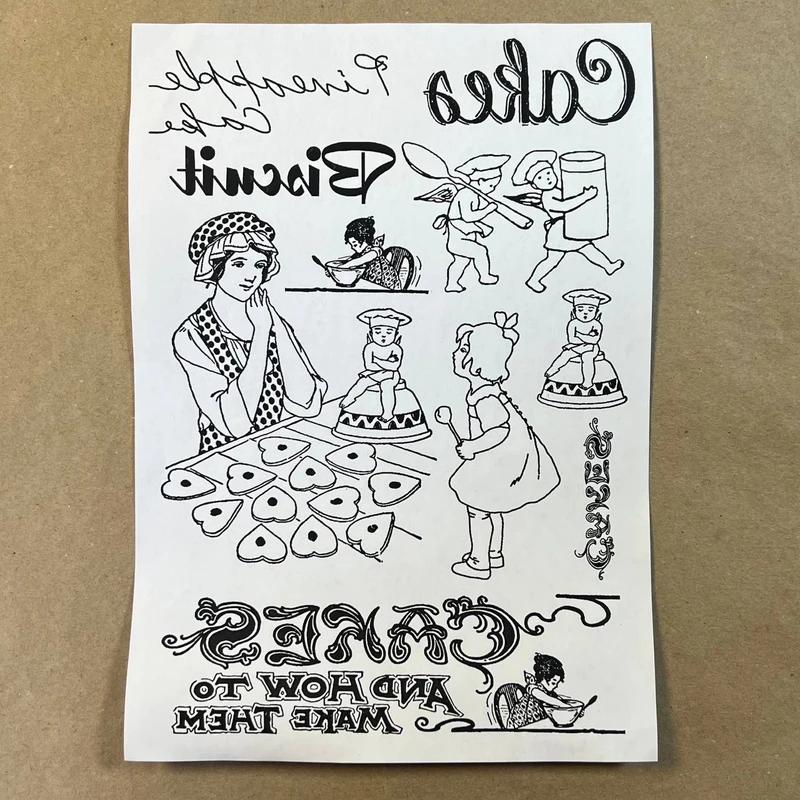 Pineapple
Cake
Cakes
Biscuit
CAKES
CAKES
AND HOW TO
MAKE THEM